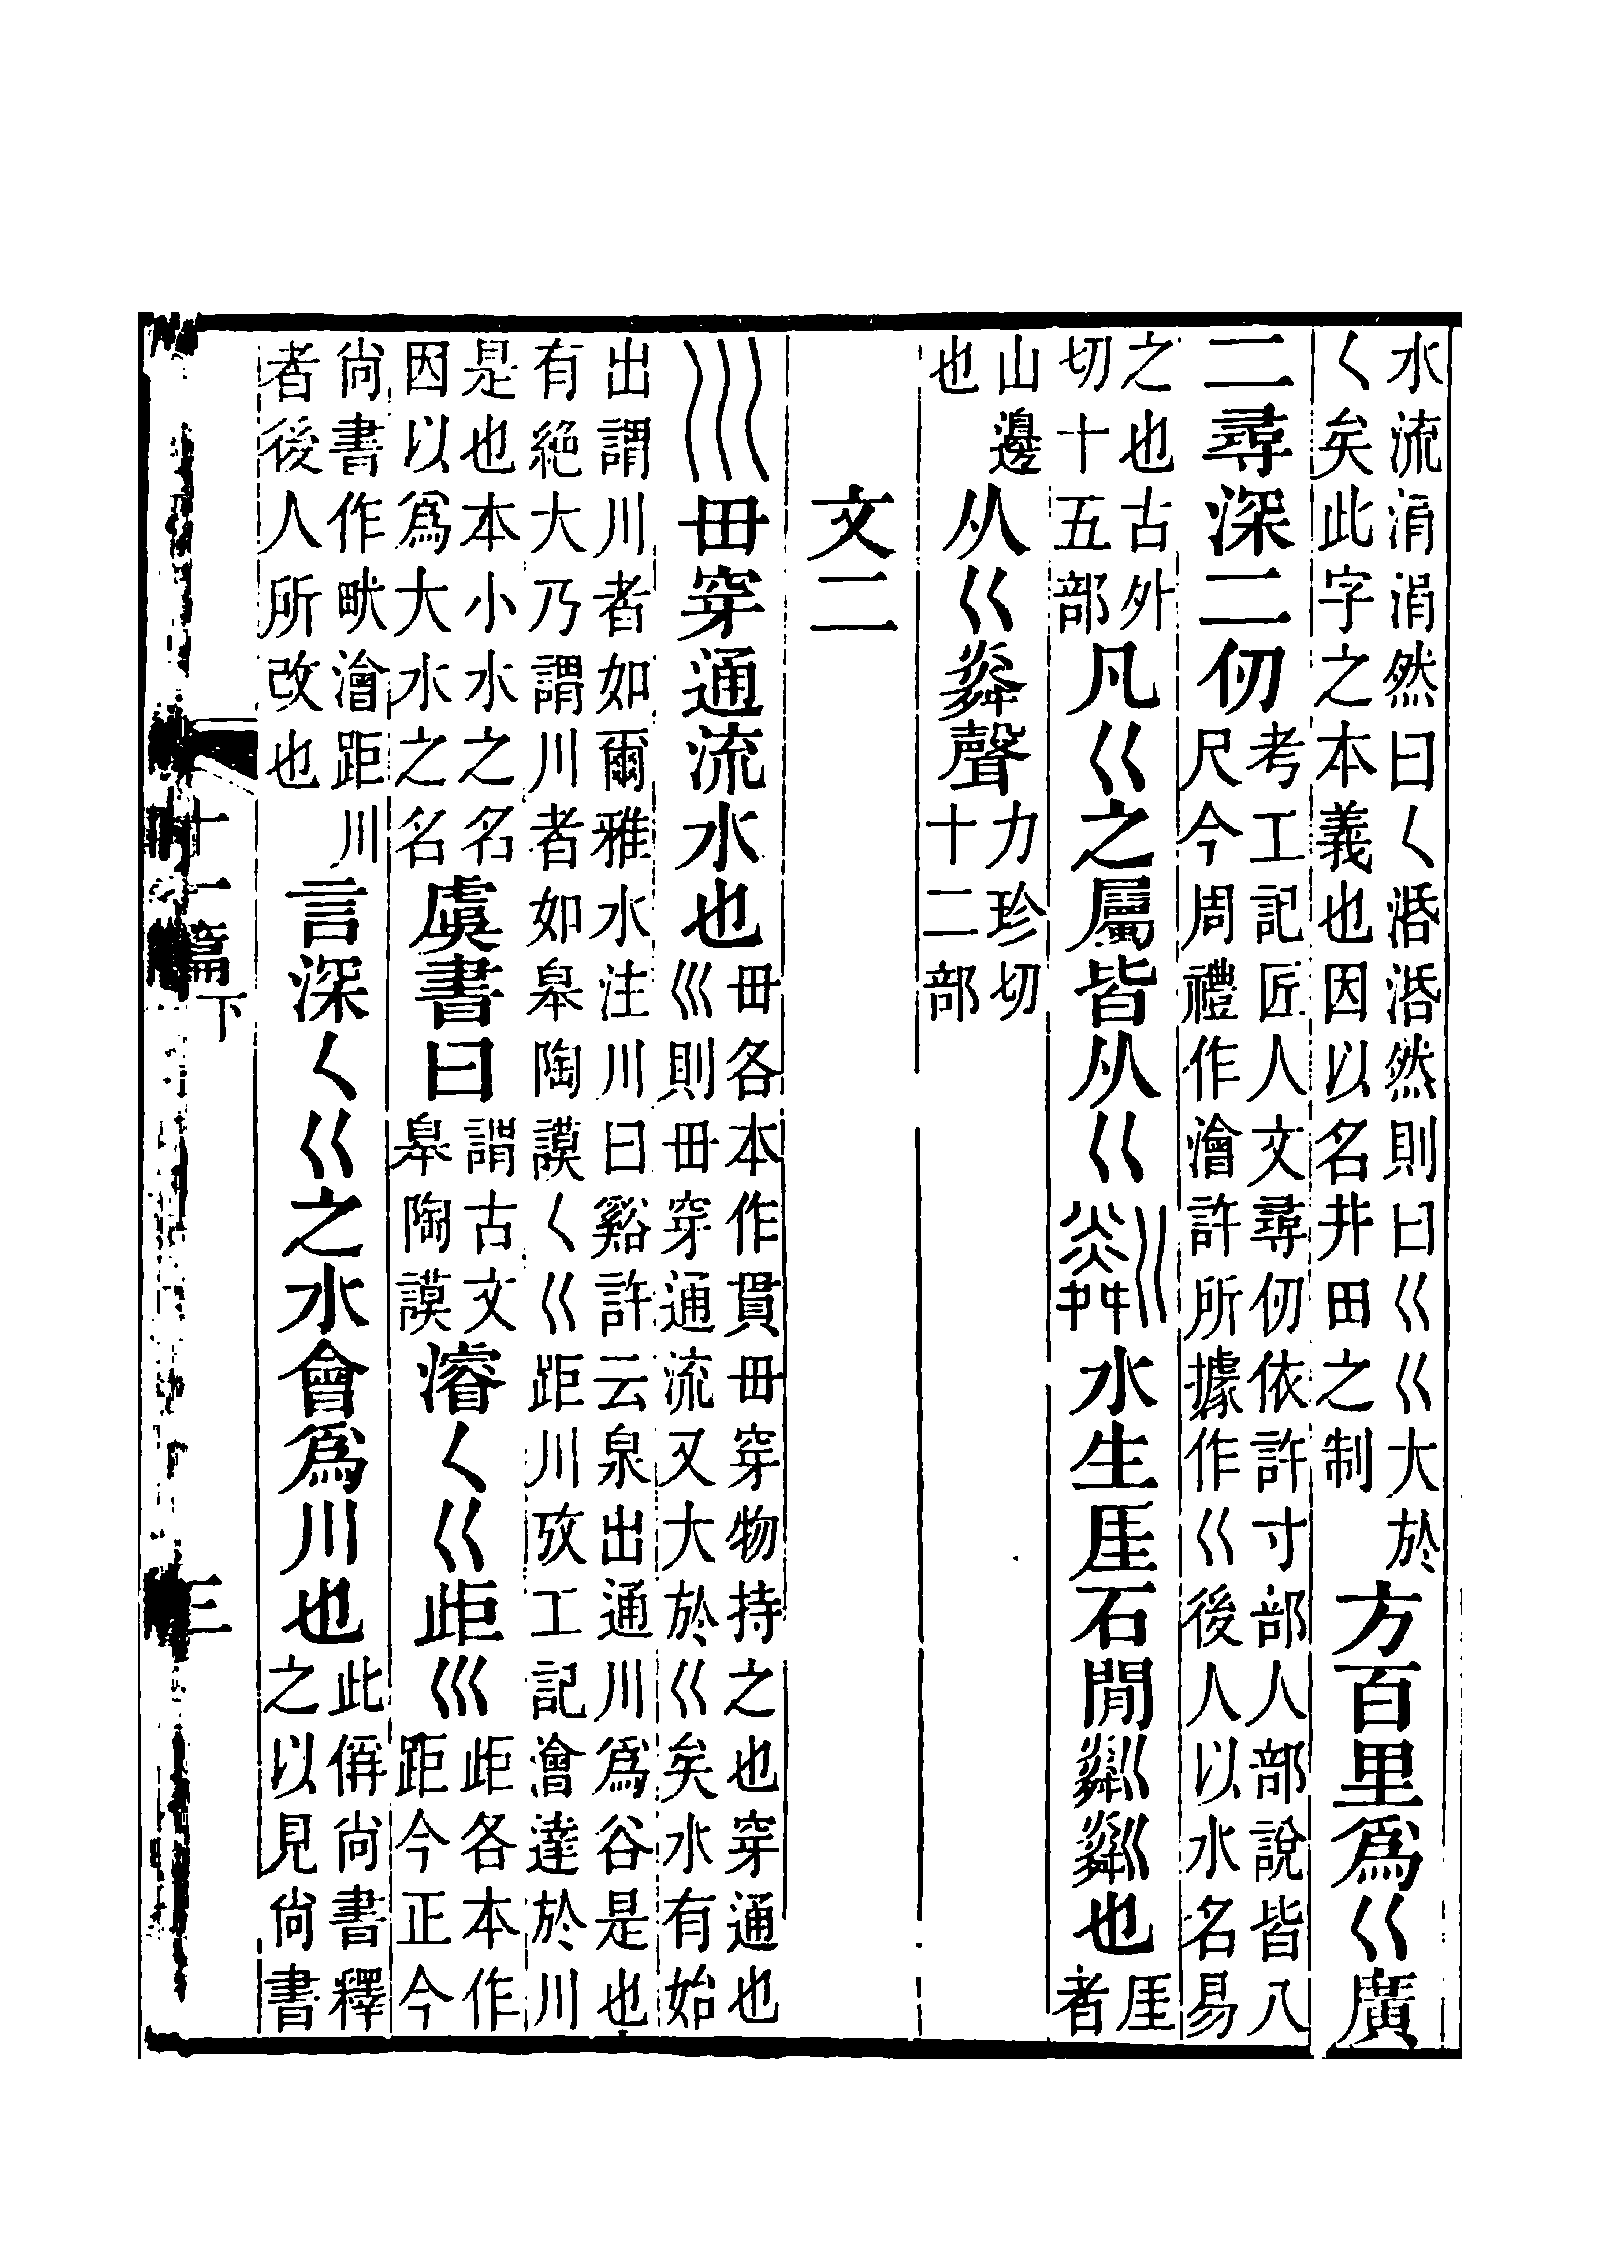 水流涓涓然曰𡿨涽涽然則曰巜巜大於𡿨矣此字之本義也因以名井田之制方百里爲巜廣
二尋深二仞考工記匠人文尋仞依許寸部人部說皆八尺今周禮作澮許所據作巜後人以水名易
之也古外切十五部凡巜之屬皆从巜粼水生厓石閒粼粼也厓者
山邊也从巜㷠聲力珍切十二部
文二
巛毌穿通流水也毌各本作貫毌穿物持之也穿通也巛則毌穿通流又大於巜矣水有始
出謂川者如爾雅水注川曰谿許云泉出通川爲谷是也有絕大乃謂川者如皋陶謨𡿨巜距川攷工記澮達於川
是也本小水之名因以爲大水之名虞書曰謂古文皋陶謨濬𡿨巜歫巛歫各本作距今正今
尙書作畎澮距川者後人所改也言深𡿨巜之水會爲川也此偁尙書釋之以見尙書
十一篇下 三